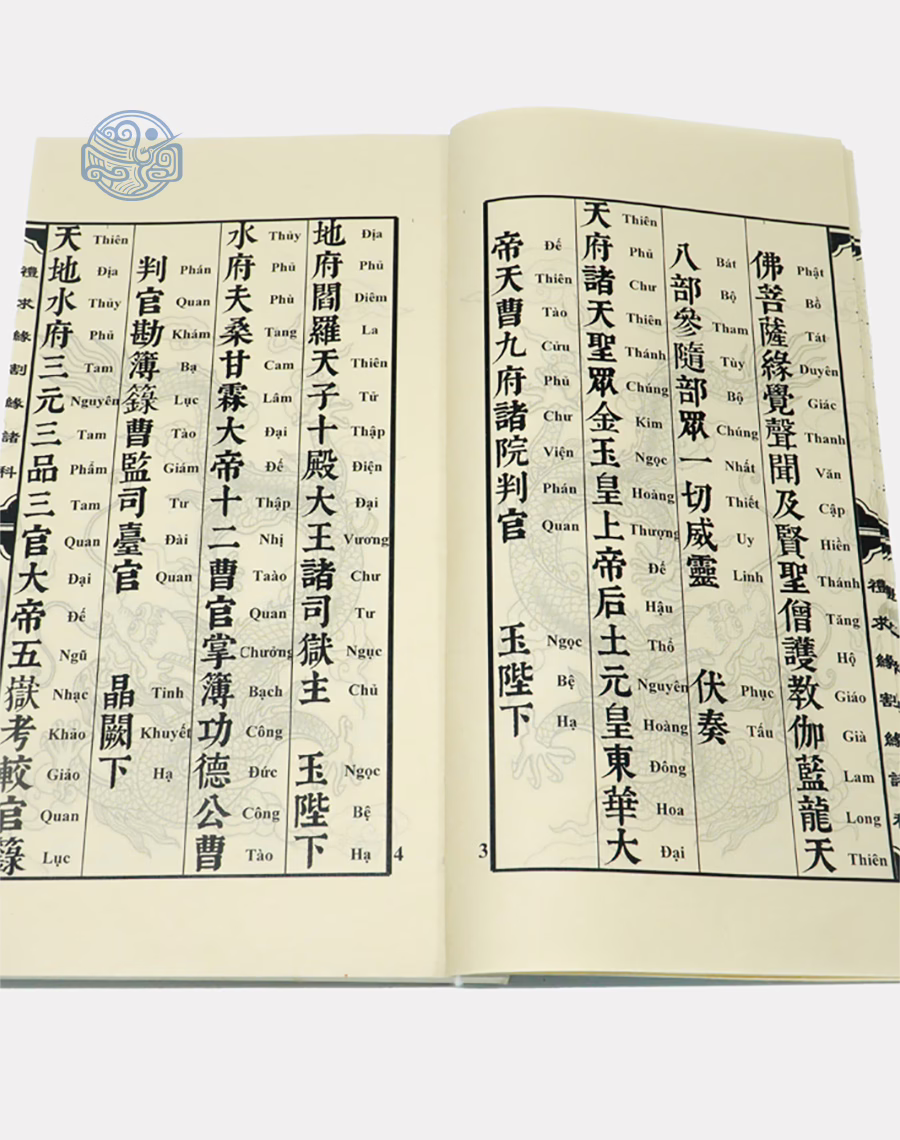 禮求緣割緣諸
佛菩薩緣覺聲聞及賢聖僧護教伽藍龍天
Phật Bồ Tát Duyên Giác Thanh Văn Cập Hiền Thánh Tăng Hộ Giáo Già Lam Long Thiên
八部參隨部眾一切威靈 伏奏
Bát Bộ Tham Tùy Bộ Chúng Nhất Thiết Uy Linh Phục Tấu
天府諸天聖眾金玉皇上帝后土元皇東華大
Thiên Phủ Chư Thiên Thánh Chúng Kim Ngọc Hoàng Thượng Đế Hậu Thổ Nguyên Hoàng Đông Hoa Đại
帝天曹九府諸院判官 玉陛下
Đế Thiên Tào Cửu Phủ Chư Viện Phán Quan Ngọc Bệ Hạ
3
地府閻羅天子十殿大王諸司獄主 玉陛下
Địa Phủ Diêm La Thiên Tử Thập Điện Đại Vương Chư Tư Ngục Chủ Ngọc Bệ Hạ
水府夫桑甘霖大帝十二曹官掌簿功德公曹
Thủy Phủ Phù Tang Cam Lâm Đại Đế Thập Nhị Taào Quan Chưởng Bạch Công Đức Công Tào
判官勘簿籙曹監司臺官 晶闕下
Phán Quan Khám Bạ Lục Tào Giám Tư Đài Quan Tinh Khuyết Hạ
天地水府三元三品三官大帝五獄考較官籙
Thiên Địa Thủy Phủ Tam Nguyên Tam Phẩm Tam Quan Đại Đế Ngũ Nhạc Khảo Giáo Quan Lục
禮求緣割緣諸科
4